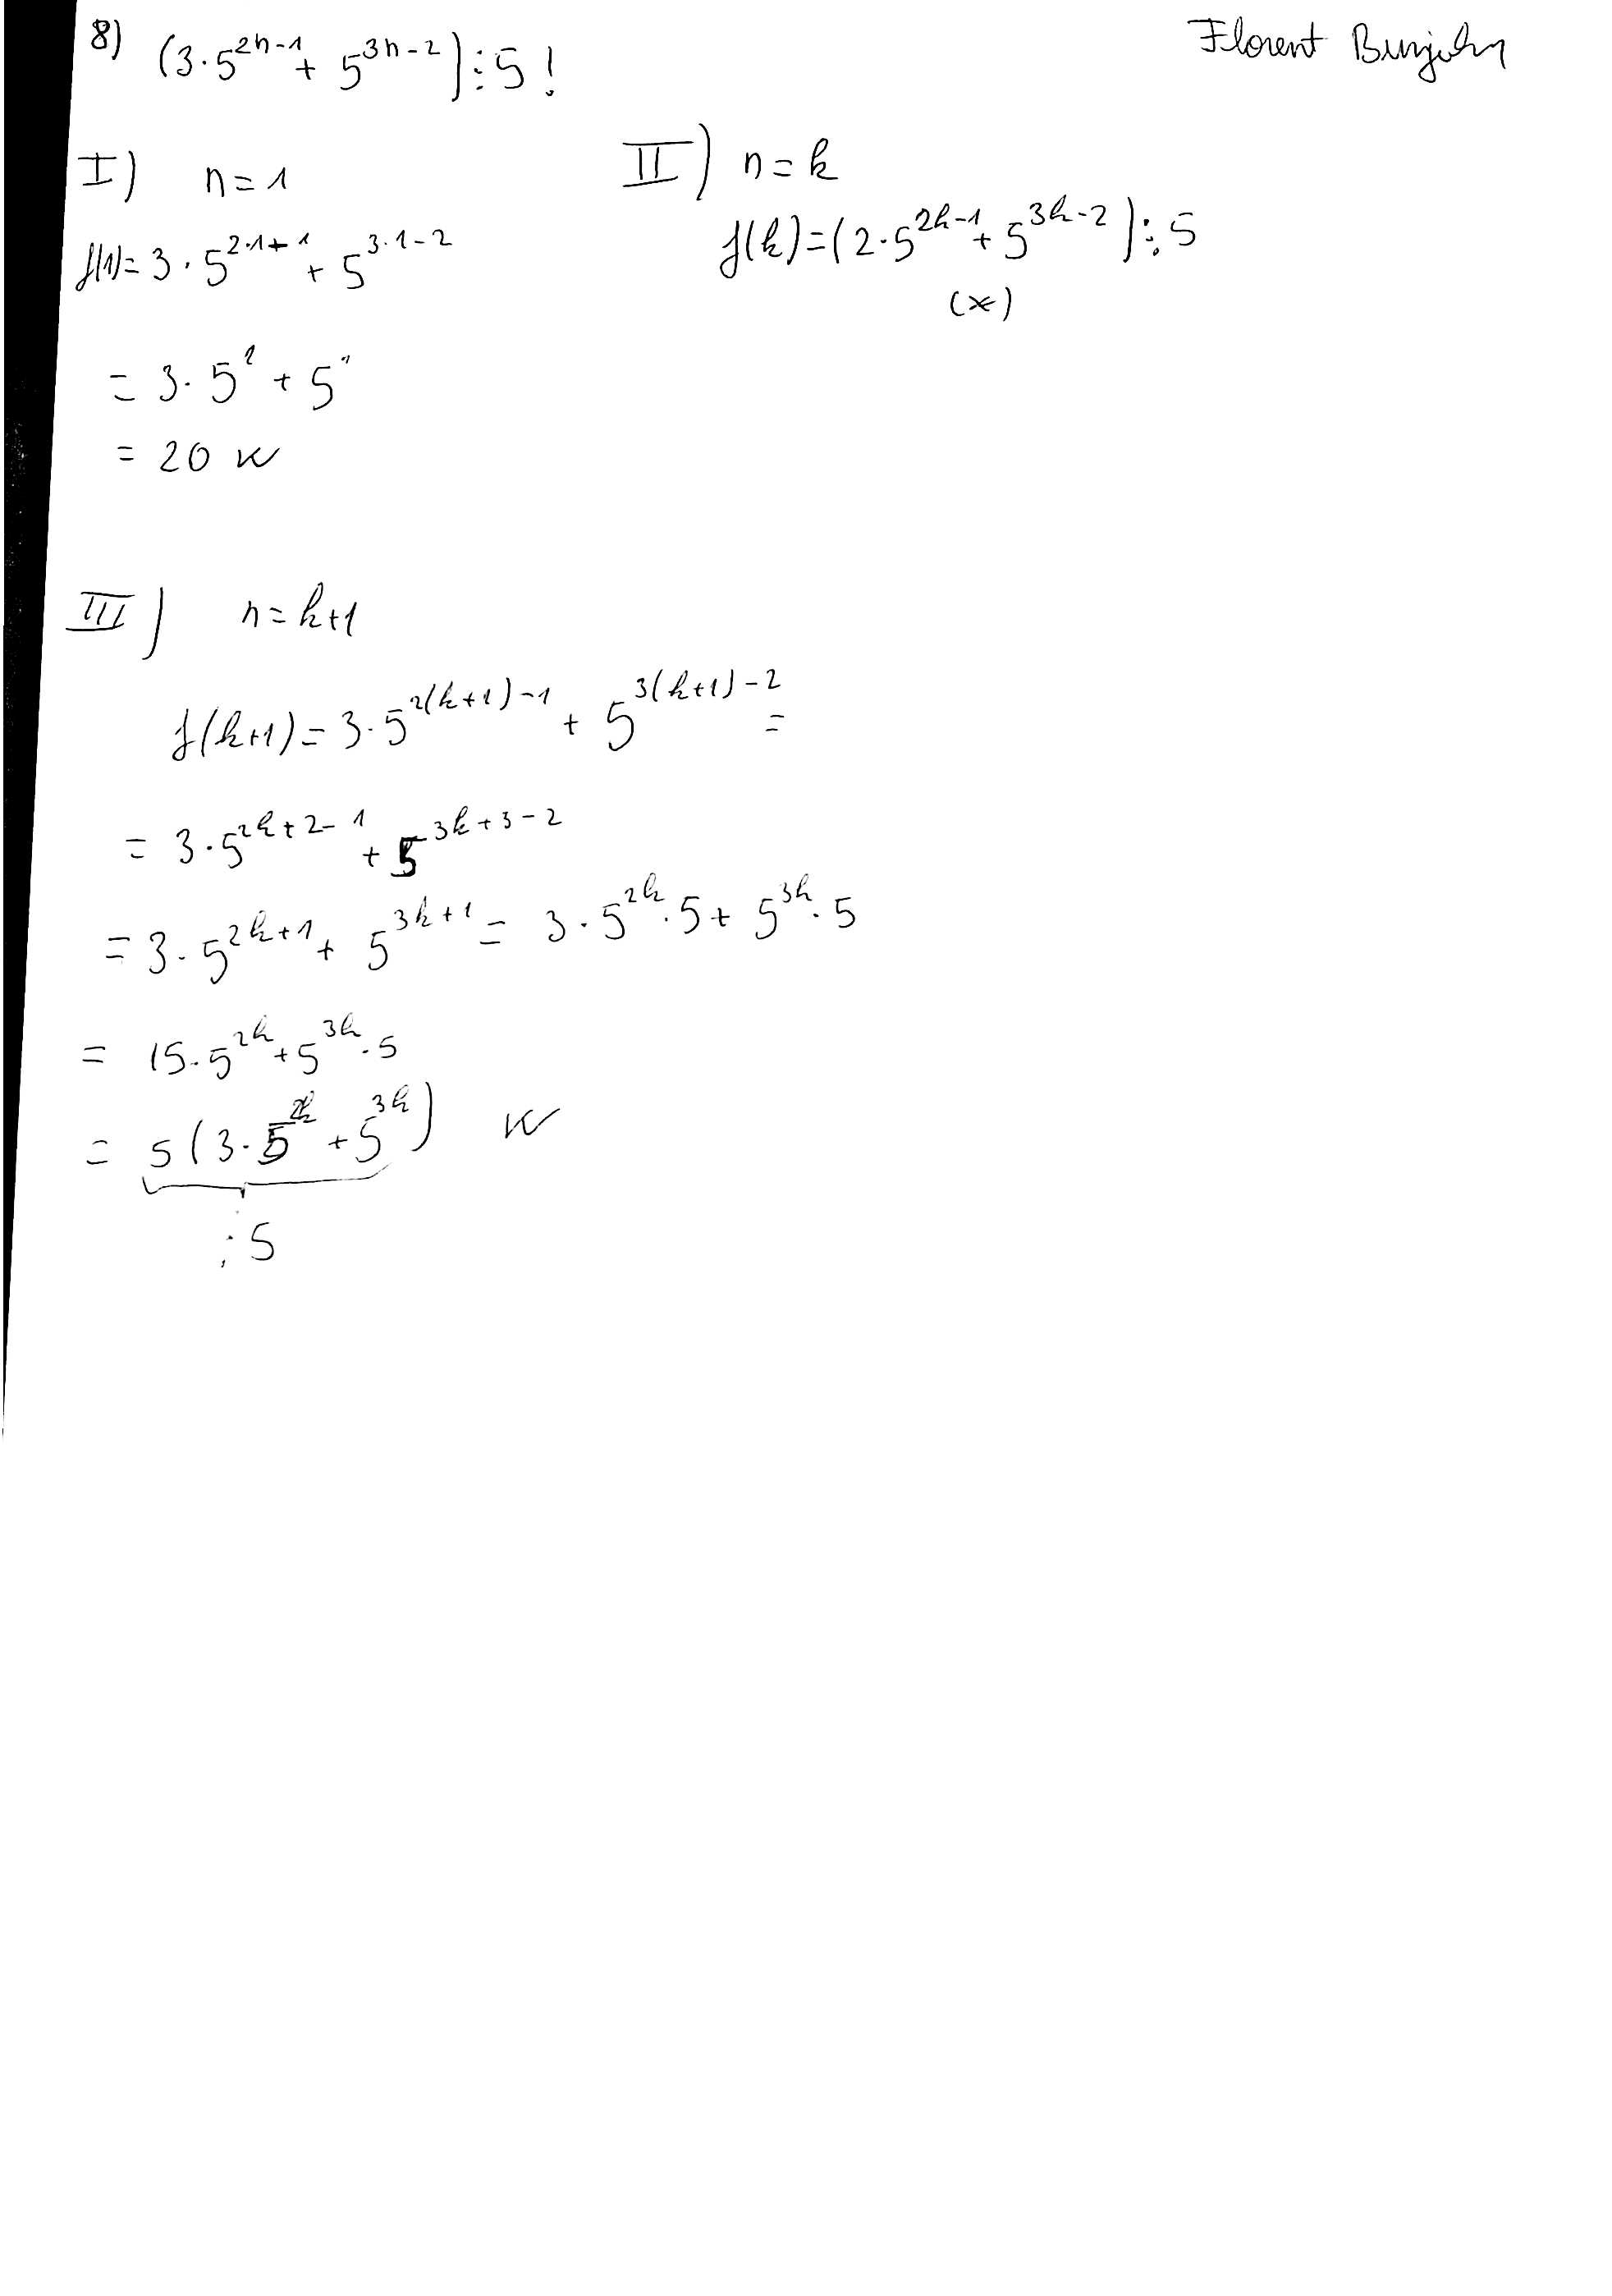 8) (3·5^{2n-1} + 5^{3n-2}) ⋮ 5 !
Florent
I) n=1
f(1)= 3·5^{2·1+1} + 5^{3·1-2}
= 3·5^1 + 5^1
= 20 w
II) n=k
f(k)=(2·5^{2k-1} + 5^{3k-2}) ⋮ 5
(*)
III) n=k+1
f(k+1)= 3·5^{2(k+1)-1} + 5^{3(k+1)-2} =
= 3·5^{2k+2-1} + 5^{3k+3-2}
= 3·5^{2k+1} + 5^{3k+1} = 3·5^{2k}·5 + 5^{3k}·5
= 15·5^{2k} + 5^{3k}·5
= 5(3·5^{2k} + 5^{3k}) w
⋮ 5